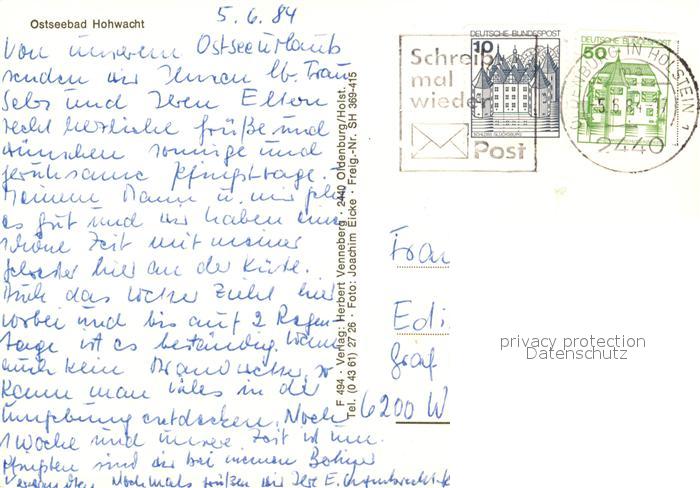 Ostseebad Hohwacht
5.6.84
Von unserem Ostseeurlaub
senden wir Ihnen lb. Frau
und Ihren Eltern
recht herzliche Grüße und
wünschen sonnige und
geruhsame Pfingsttage.
Meinem Mann u. mir
es gut und wir haben eine
schöne Zeit mit meiner
hier an der Küste.
Auch das zieht hier
vorbei und bis auf 2 Regen-
tage ist es beständig. Wenn
auch kein
kann man vieles in der
Umgebung entdecken. Noch
1 Woche und unsere Zeit ist um.
Pfingsten sind wir bei meinen
Nochmals grüßen wir Ihre
F 494 · Verlag: Herbert Venneberg · 2440 Oldenburg/Holst.
Tel. (0 43 61) 27 26 · Foto: Joachim Eicke · Freig.-Nr. SH 369-415
Schreib
mal
wieder
Post
DEUTSCHE BUNDESPOST
10
SCHLOSS GLÜCKSBURG
DEUTSCHE BUNDESPOST
50
OLDENBURG IN HOLSTEIN 1
-5.6.84-17
2440
Frau
Edi
Graf
6200 W
privacy protection
Datenschutz